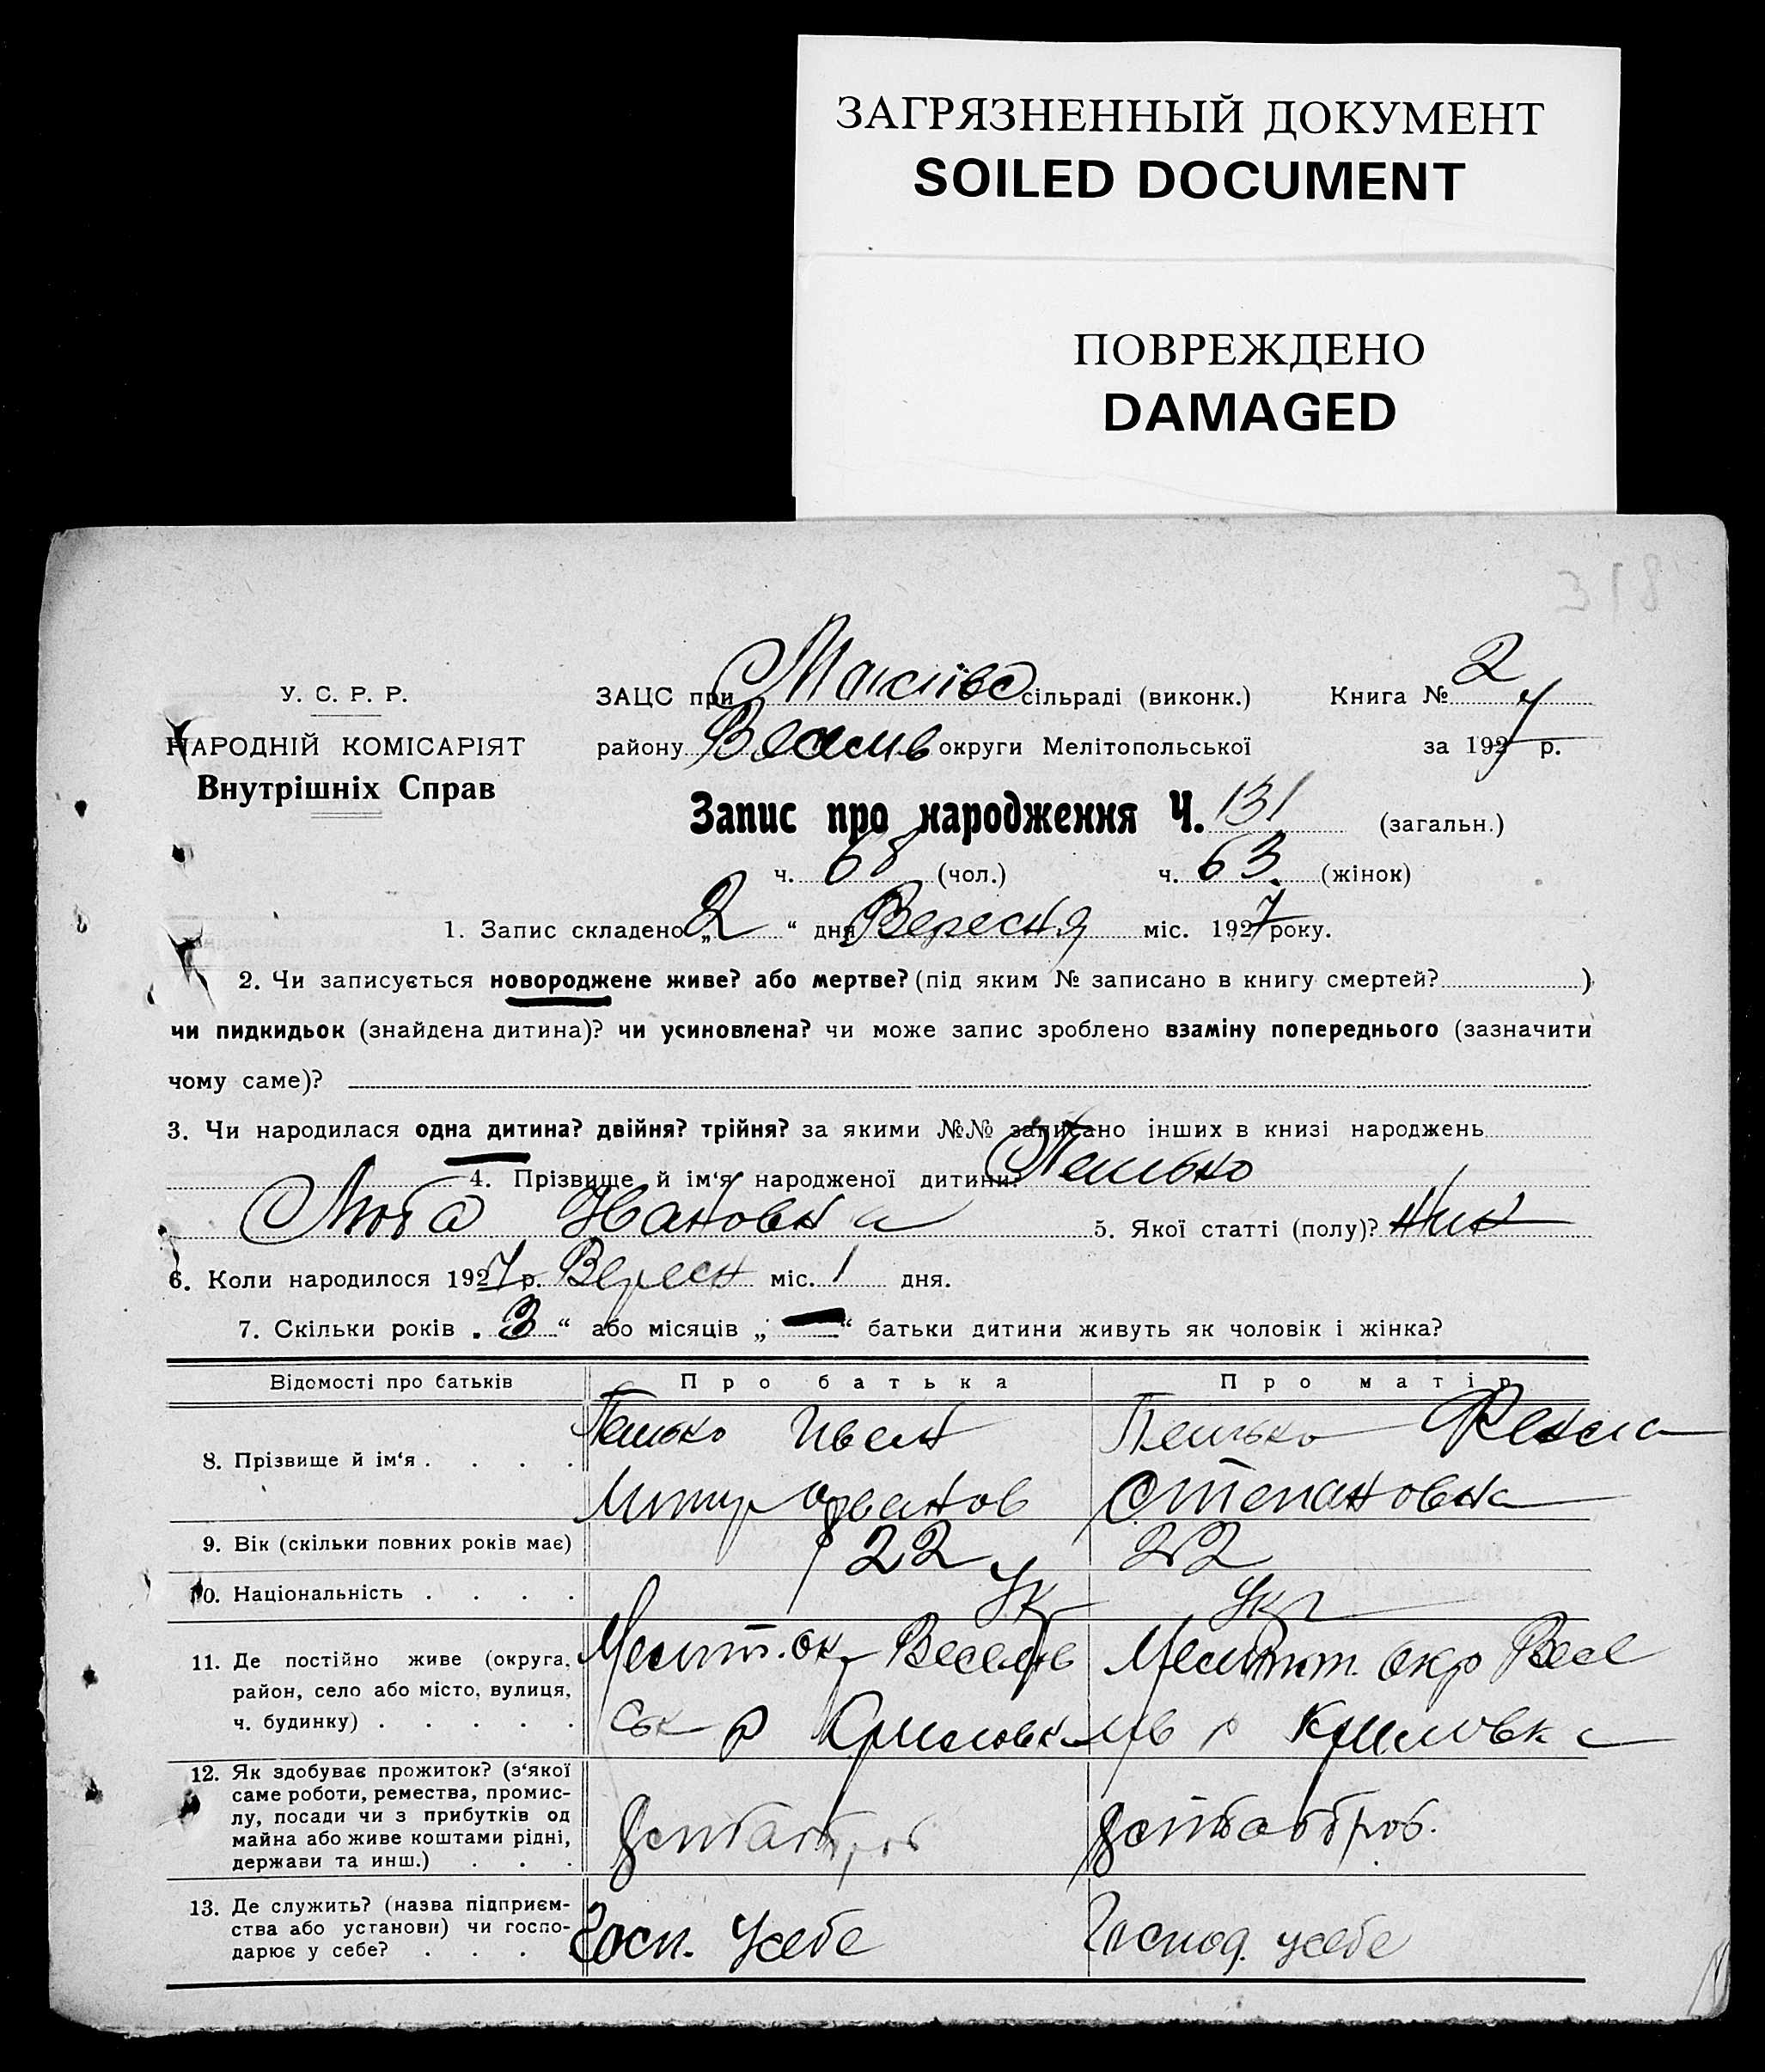 ЗАГРЯЗНЕННЫЙ ДОКУМЕНТ
SOILED DOCUMENT
ПОВРЕЖДЕНО
DAMAGED
318
У. С. Р. Р.
НАРОДНІЙ КОМІСАРІЯТ
Внутрішніх Справ
ЗАЦС при сільраді (виконк.) Книга № 2
району округи Мелітопольської за 1927 р.
Запис про народження Ч. 131 (загальн.)
ч. 68 (чол.) ч. 63 (жінок)
1. Запис складено „ 2 “ дня Вересня міс. 1927 року.
2. Чи записується новороджене живе? або мертве? (під яким № записано в книгу смертей? )
чи пидкидьок (знайдена дитина)? чи усиновлена? чи може запис зроблено взаміну попереднього (зазначити
чому саме)?
3. Чи народилася одна дитина? двійня? трійня? за якими №№ записано інших в книзі народжень
4. Прізвище й ім‘я народженої дитини? Пешько
Люба Ивановна 5. Якої статті (полу)? Жин
6. Коли народилося 1927 р. Вересн міс. 1 дня.
7. Скільки років „ 3 “ або місяців „ — “ батьки дитини живуть як чоловік і жінка?
Відомості про батьків Про батька Про матір
8. Прізвище й ім‘я . . . . Пешько Иван Пешько Фекла
Степановна
9. Вік (скільки повних років має) 22 22
10. Національність . . . . Ук Укр
11. Де постійно живе (округа, Мелит. ок Веселов Мелит. окр Весе
район, село або місто, вулиця,
ч. будинку) . . . . . ськ р р
12. Як здобуває прожиток? (з‘якої
саме роботи, ремества, промис-
лу, посади чи з прибутків од
майна або живе коштами рідні,
держави та инш.) . . .
13. Де служить? (назва підприєм-
ства або установи) чи госпо-
дарює у себе? . . . . Госп. усебе Господ. усебе